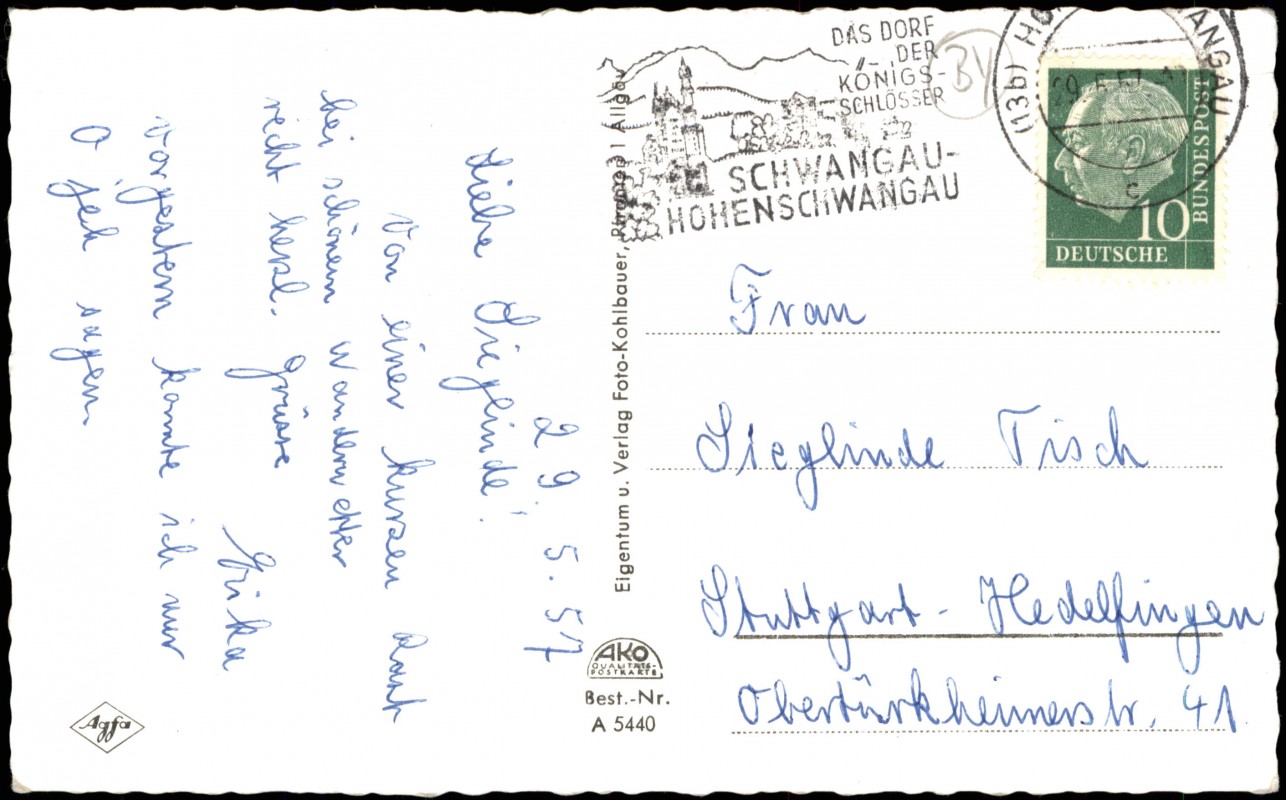 29. 5. 57
Liebe Sieglinde!
Von einer kurzen Rast
bei schönem Wanderwetter
recht herzl. Grüsse
Erika
Vorgestern konnte ich nur
O jeh sagen.
DAS DORF
DER
KÖNIGS-
SCHLÖSSER
SCHWANGAU-
HOHENSCHWANGAU
BY
(13b) HO ANGAU
29. 5. 57
c
10
DEUTSCHE
BUNDESPOST
Frau
Sieglinde Tisch
Stuttgart - Hedelfingen
Obertürkheimerstr. 41.
Eigentum u. Verlag Foto-Kohlbauer, Pfronten | Allgäu
AKO
QUALITÄTS-
POSTKARTE
Best.-Nr.
A 5440
Agfa